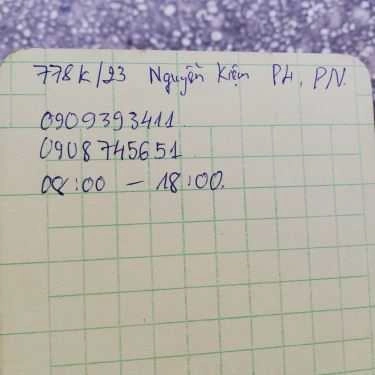 778K/23 Nguyễn Kiệm P4, PN.
0909393411
0908745651
08:00 – 18:00.